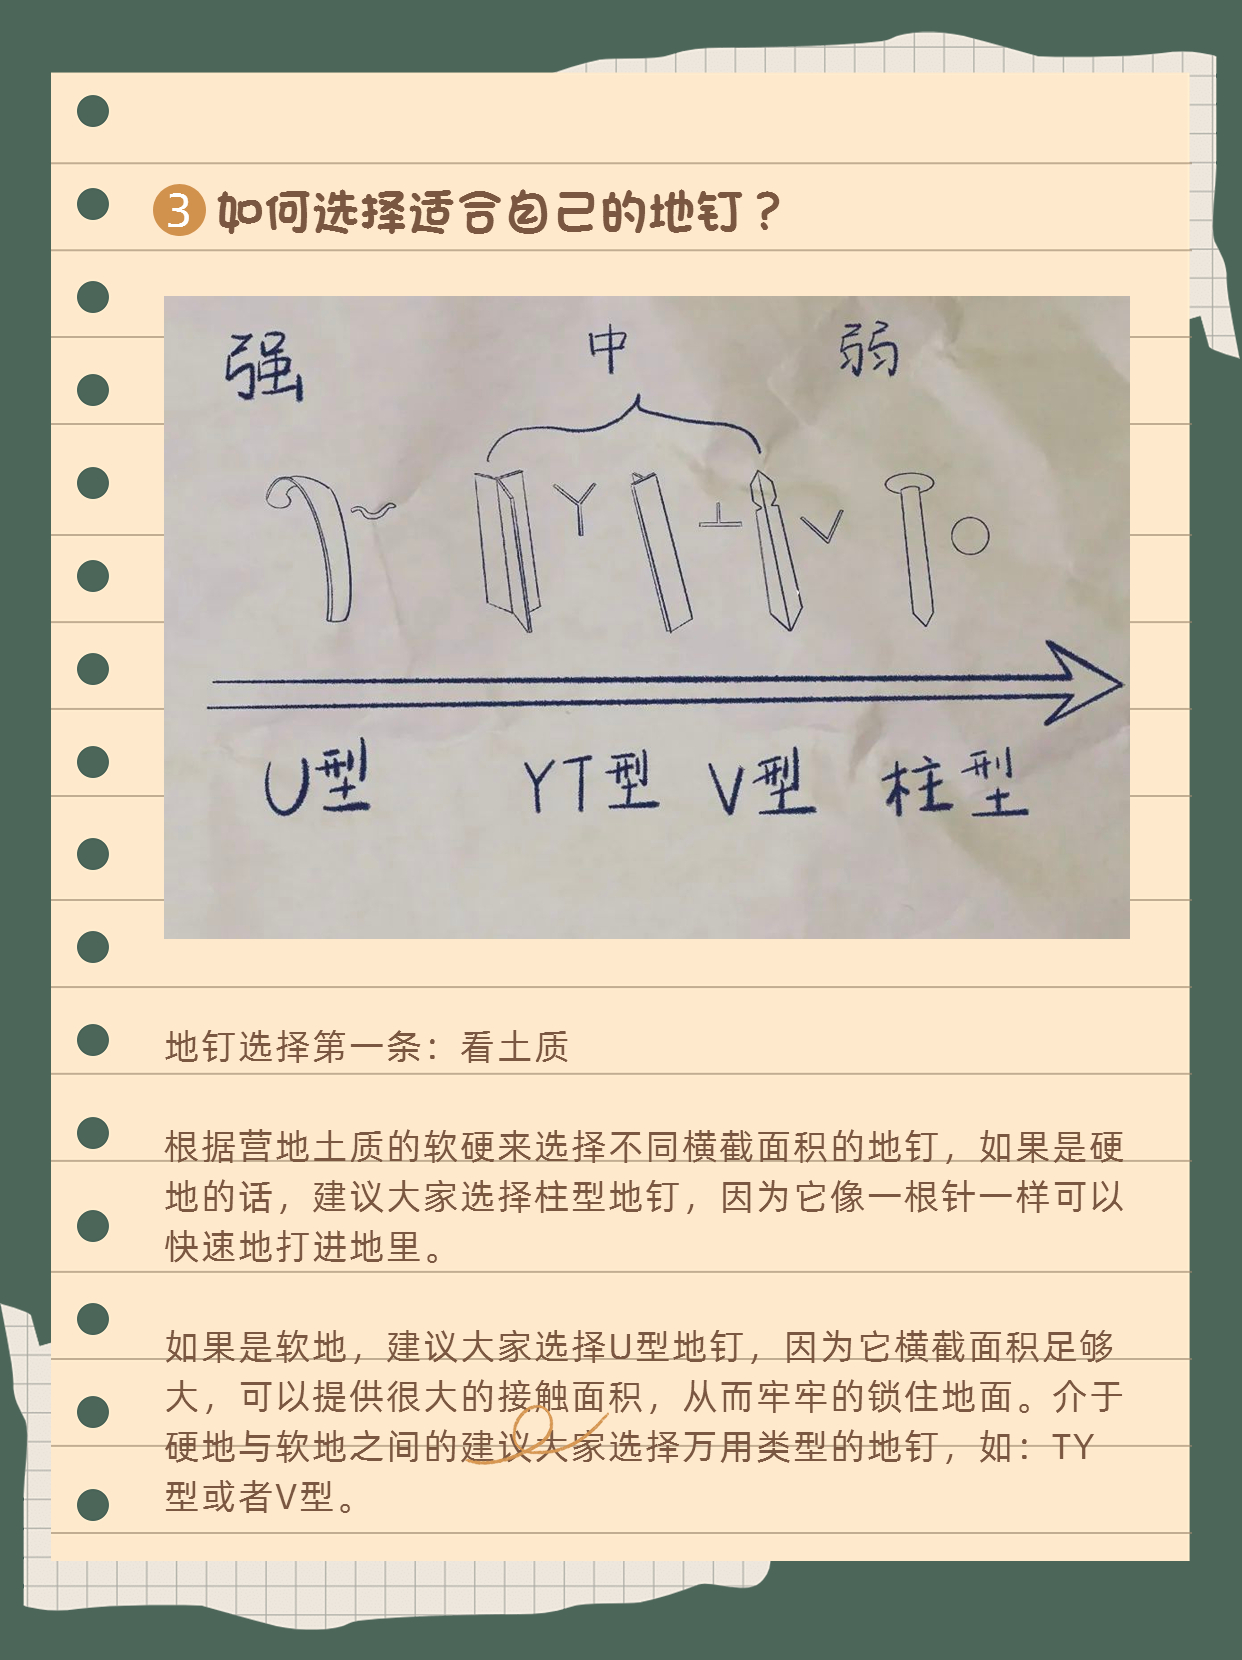 3 如何选择适合自己的地钉？
强 中 弱
U型 YT型 V型 柱型
地钉选择第一条：看土质
根据营地土质的软硬来选择不同横截面积的地钉，如果是硬
地的话，建议大家选择柱型地钉，因为它像一根针一样可以
快速地打进地里。
如果是软地，建议大家选择U型地钉，因为它横截面积足够
大，可以提供很大的接触面积，从而牢牢的锁住地面。介于
硬地与软地之间的建议大家选择万用类型的地钉，如：TY
型或者V型。